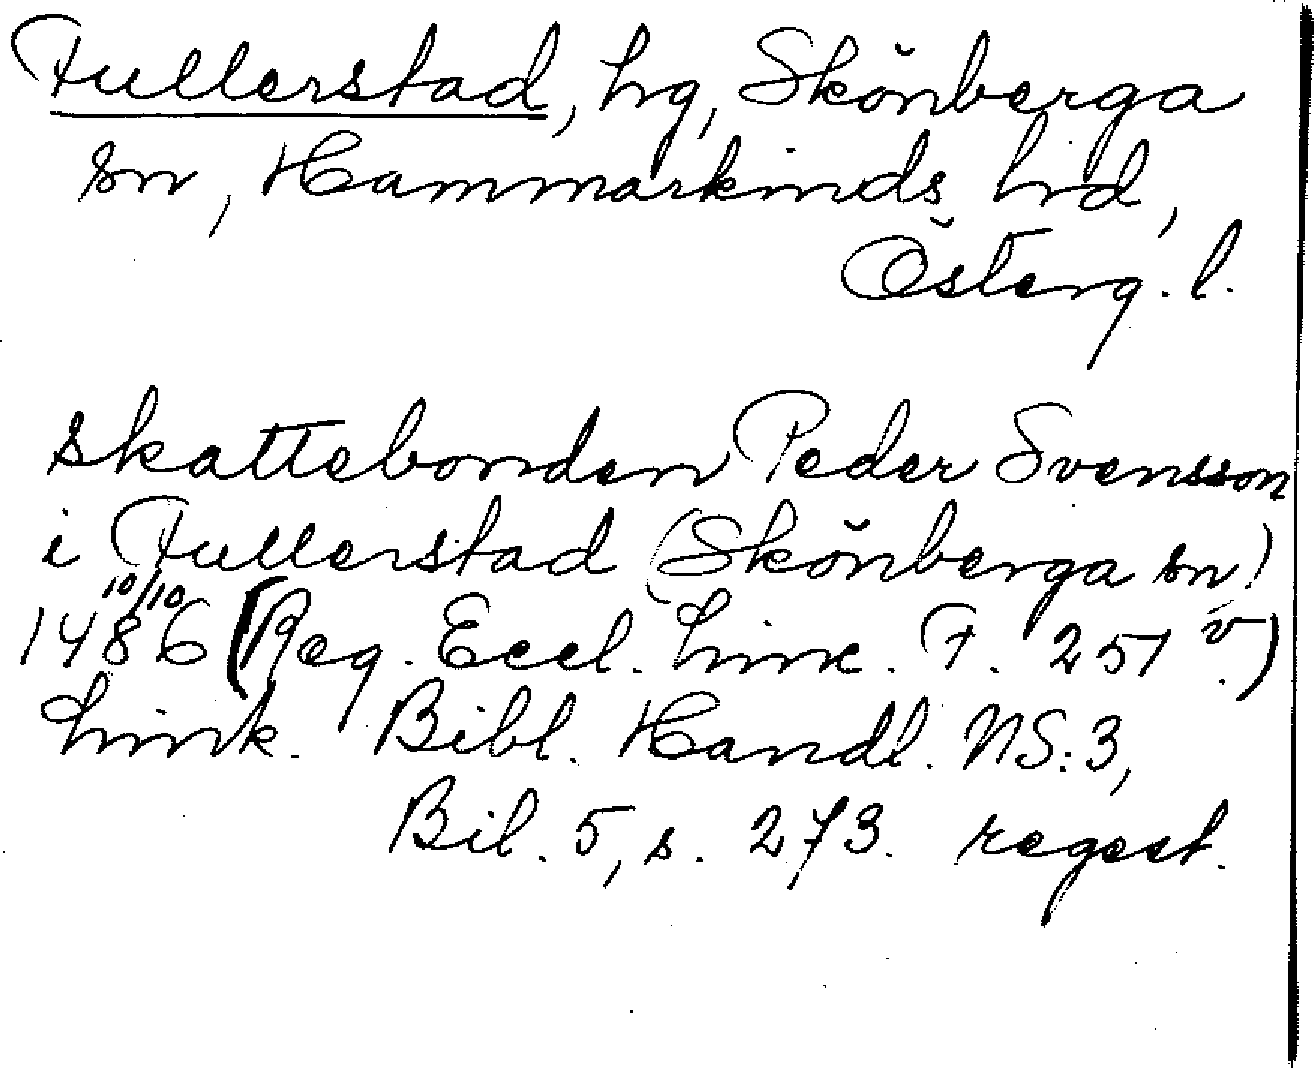 Fullerstad, hg, Skönberga
sn, Hammarkinds hrd,
Österg. l.
skattebonden Peder Svensson
i Fullerstad (Skönberga sn)
10/10
1486 (Reg. Eccl. Linc. F. 251 v.)
Link. Bibl. Handl. NS:3,
Bil. 5, s. 273. regest.